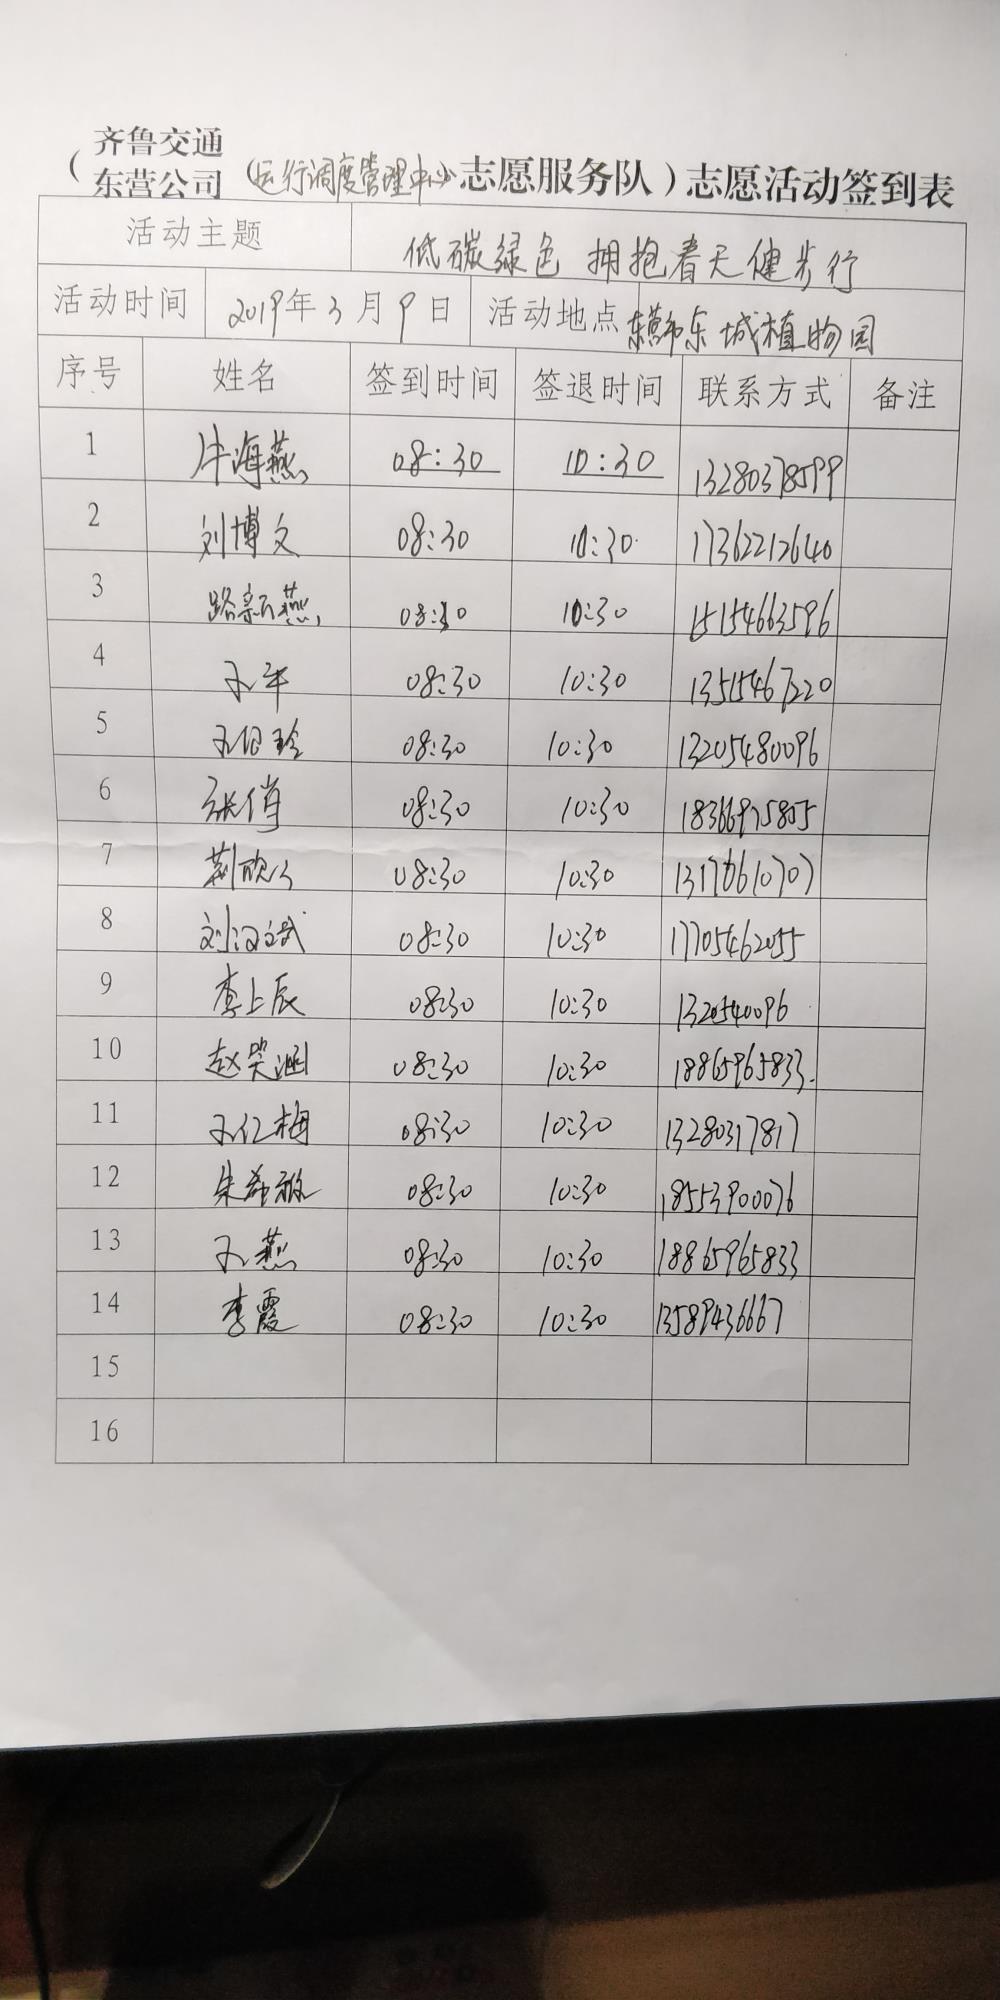 齐鲁交通
东营公司
( (运行调度管理中心) 志愿服务队) 志愿活动签到表
活动主题 低碳绿色 拥抱春天健步行
活动时间 2019年3月9日 活动地点 东营市东城植物园
序号 姓名 签到时间 签退时间 联系方式 备注
1 牛海燕 08:30 10:30 13280378599
2 刘博文 08:30 10:30 17362212640
3 路新燕 08:30 10:30 15154663596
4 王军 08:30 10:30 13515467220
5 08:30 10:30 13205480096
6 张倩 08:30 10:30 18366975805
7 08:30 10:30 13176610707
8 刘汉斌 08:30 10:30 17705462055
9 李上辰 08:30 10:30 1320540096
10 赵笑涵 08:30 10:30 18865965833
11 王仁梅 08:30 10:30 13280317817
12 08:30 10:30 18553900076
13 王燕 08:30 10:30 18865965833
14 李霞 08:30 10:30 13589436667
15
16